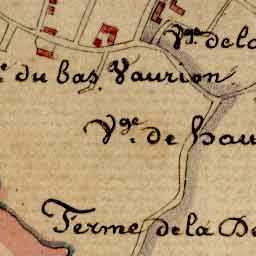 Vge. de la
du bas Vaurion
Vge. de hau
Ferme de la De